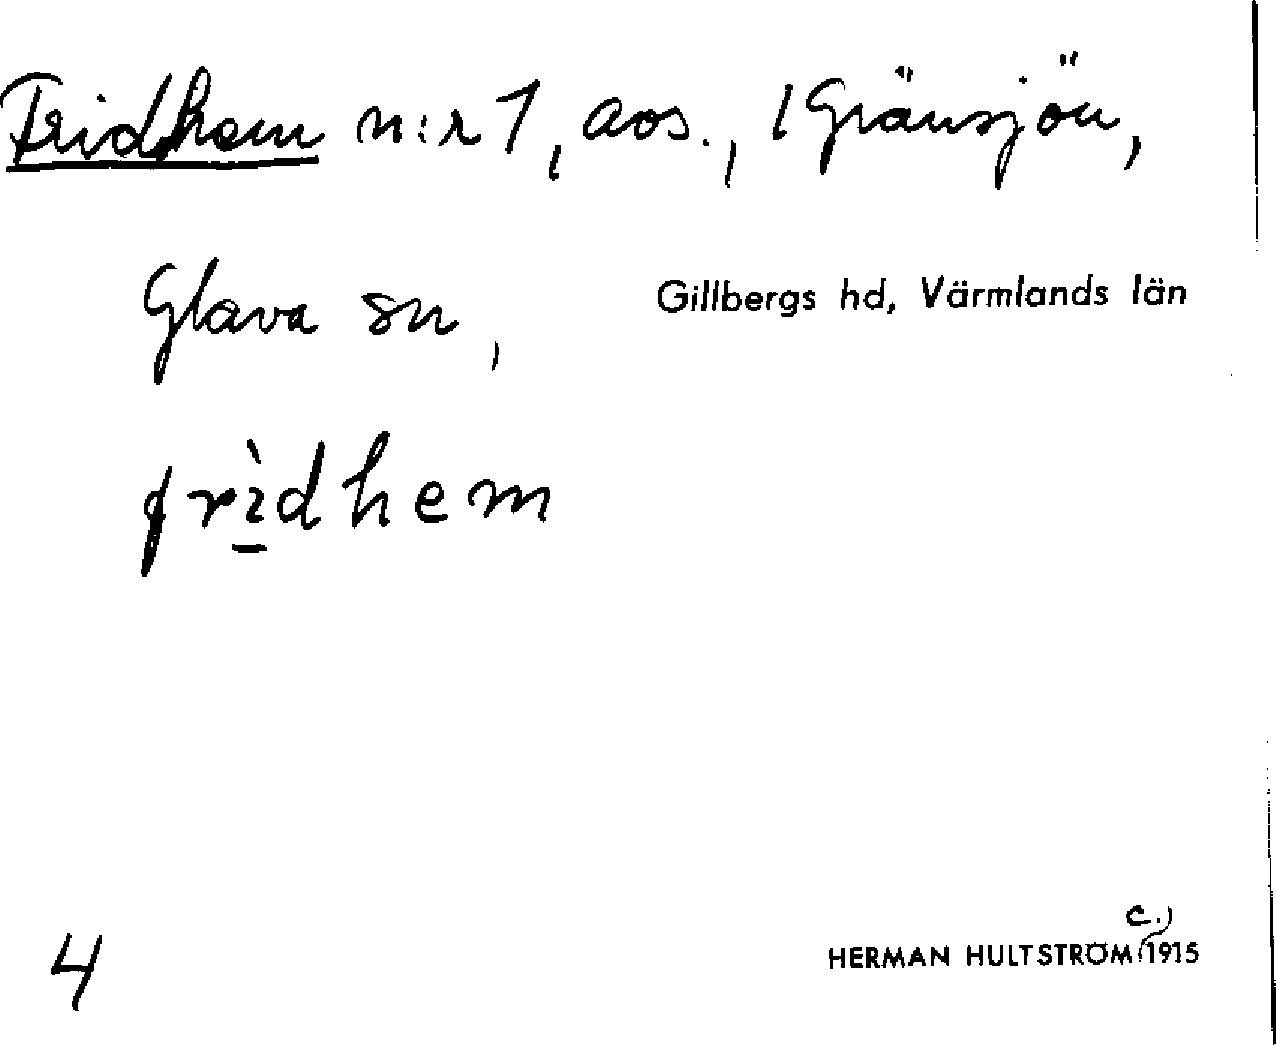 Fridhem n:r 1, aos., 1 Gränsjön,
Glava sn, Gillbergs hd, Värmlands län
frìdhem
c.)
4 HERMAN HULTSTRÖM 1915